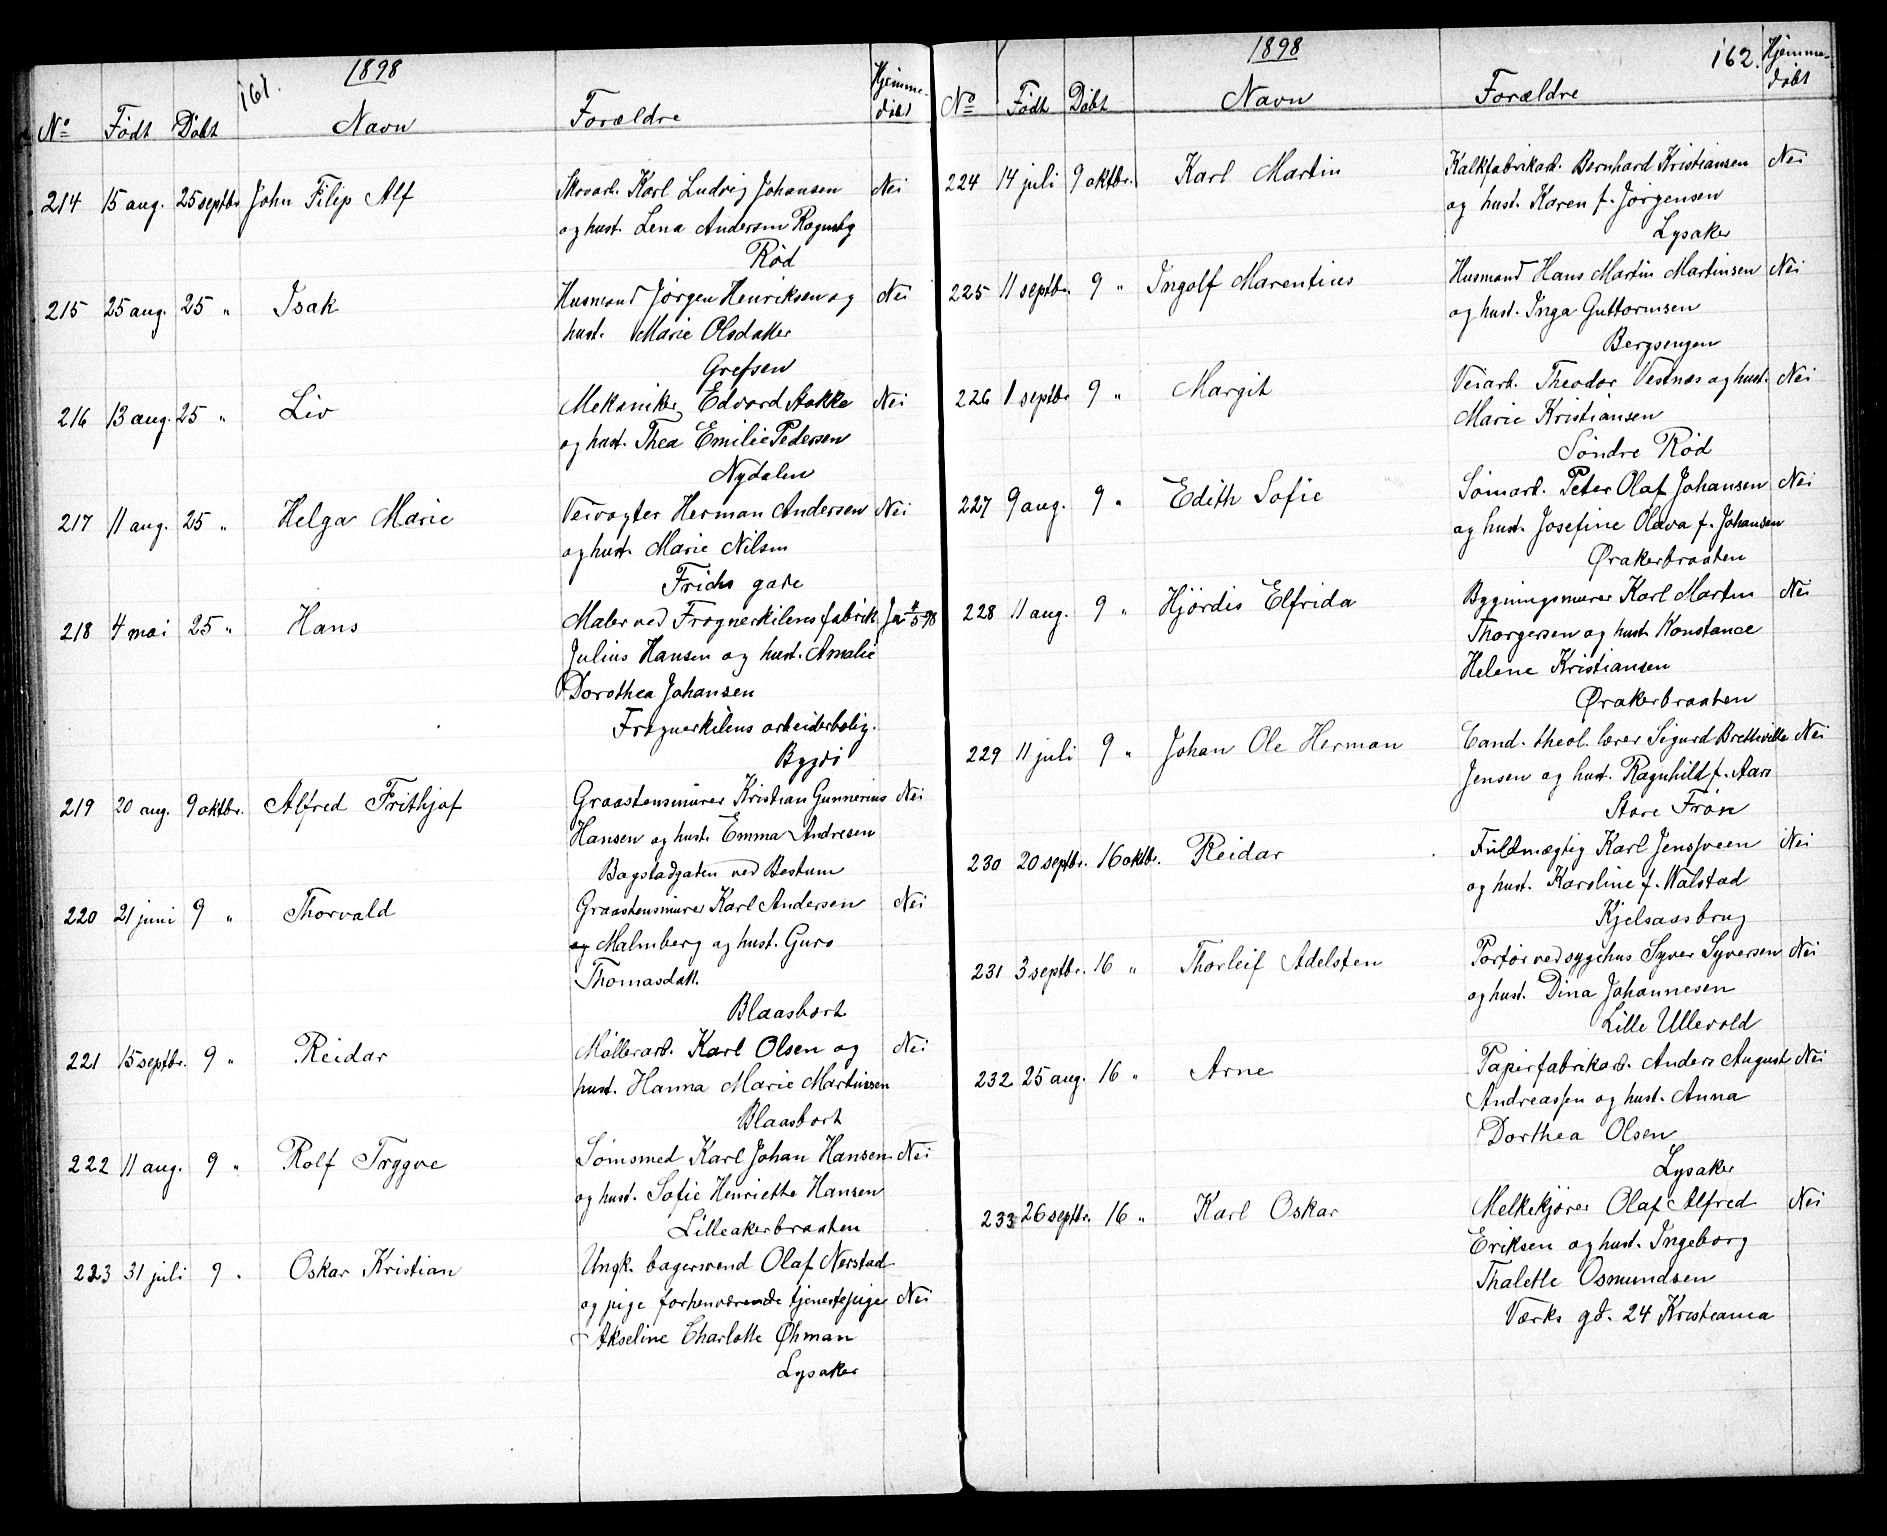 161.
1898
No Født Døbt Navn Forældre Hjemmedøbt
214 15 aug. 25 septbr John Filip Alf Skoarb. Karl Ludvig Johansen Nei
og hust. Lena Anderson Rognsby
Rød
215 25 aug. 25 " Isak Husmand Jørgen Henriksen og Nei
hust. Marie Olsdatter
Grefsen
216 13 aug. 25 " Liv Mekaniker Edvard Aakke Nei
og hust. Thea Emilie Pedersen
Nydalen
217 11 aug. 25 " Helga Marie Veivogter Herman Andersen Nei
og hust. Marie Nilsen
Frichs gade
218 4 mai 25 " Hans Maler ved Frognerkilens fabrik Ja 4/5 98
Julius Hansen og hust. Amalie
Dorothea Johansen
Frognerkilens arbeiderbolig.
Bygdø
219 20 aug. 9 oktbr. Alfred Frithjof Graastensmurer Kristian Gunnerius Nei
Hansen og hust. Emma Andresen
Bagstadgaten ved Bestum
220 21 juni 9 " Thorvald Graastensmurer Karl Andersen Nei
og Malmberg og hust. Guro
Thomasdatt.
Blaasbort
221 15 septbr. 9 " Reidar Møllerarb. Karl Olsen og Nei
hust. Hanna Marie Martinsen
Blaasbort
222 11 aug. 9 " Rolf Tryggve Sømsmed Karl Johan Hansen Nei
og hust. Sofie Henriette Hansen
Lilleakerbraaten
223 31 juli 9 " Oskar Kristian Ungk. bagersvend Olaf Nerstad
og pige forhenværende tjenestepige Nei
Akseline Charlotte Øhman
Lysaker
1898
162.
No Født Døbt Navn Forældre Hjemmedøbt
224 14 juli 9 oktbr. Karl Martin Kalkfabrikarb. Bernhard Kristiansen Nei
og hust. Karen f. Jørgensen
Lysaker
225 11 septbr. 9 " Ingolf Marentius Husmand Hans Martin Martinsen Nei
og hust. Inga Guttormsen
Bergsengen
226 1 septbr 9 " Margit Veiarb. Theodor Vestnæs og hust. Nei
Marie Kristiansen
Søndre Rød
227 9 aug. 9 " Edith Sofie Sømarb. Peter Olaf Johansen Nei
og hust. Josefine Olava f. Johansen
Ørakerbraaten
228 11 aug. 9 " Hjørdis Elfrida Bygningsmurer Karl Martin Nei
Thorgersen og hust. Konstance
Helene Kristiansen
Ørakerbraaten
229 11 juli 9 " Johan Ole Herman Cand. theol. lærer Sigurd Bretteville Nei
Jensen og hust. Ragnhild f. Aars
Store Frøn
230 20 septbr. 16 oktbr. Reidar Fuldmægtig Karl Jenssveen Nei
og hust. Karoline f. Walstad
Kjelsaasbrug
231 3 septbr. 16 " Thorleif Adelsten Portør ved sygehus Syver Syversen Nei
og hust. Dina Johannesen
Lille Ullevold
232 25 aug. 16 " Arne Papirfabrikarb. Anders August Nei
Andreassen og hust. Anna
Dorthea Olsen
Lysaker
233 26 septbr. 16 " Karl Oskar Melkekjører Olaf Alfred Nei
Eriksen og hust. Ingeborg
Thalette Osmundsen
Værks gd. 24 Kristiania